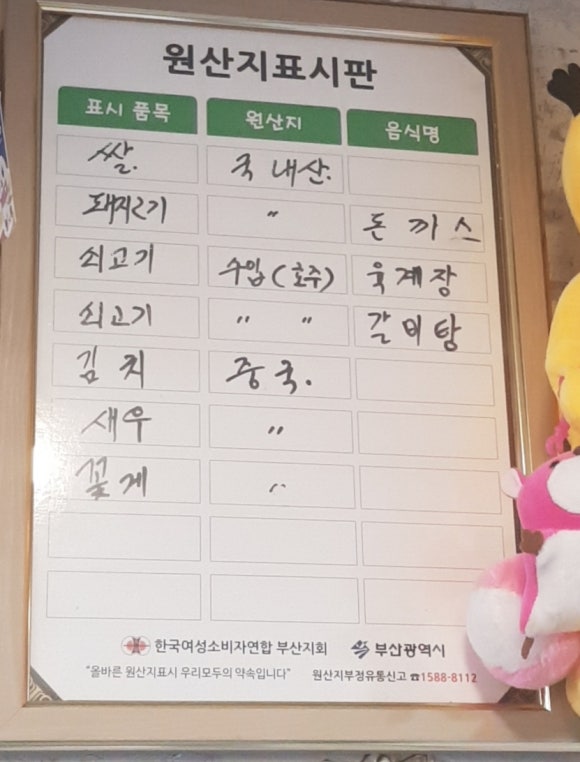 원산지표시판
표시 품목 원산지 음식명
쌀. 국내산.
돼지고기 〃 돈까스
쇠고기 수입(호주) 육계장
쇠고기 〃 〃 갈비탕
김치 중국.
새우 〃
꽃게 〃
한국여성소비자연합 부산지회 부산광역시
"올바른 원산지표시 우리모두의 약속입니다" 원산지부정유통신고 ☎1588-8112